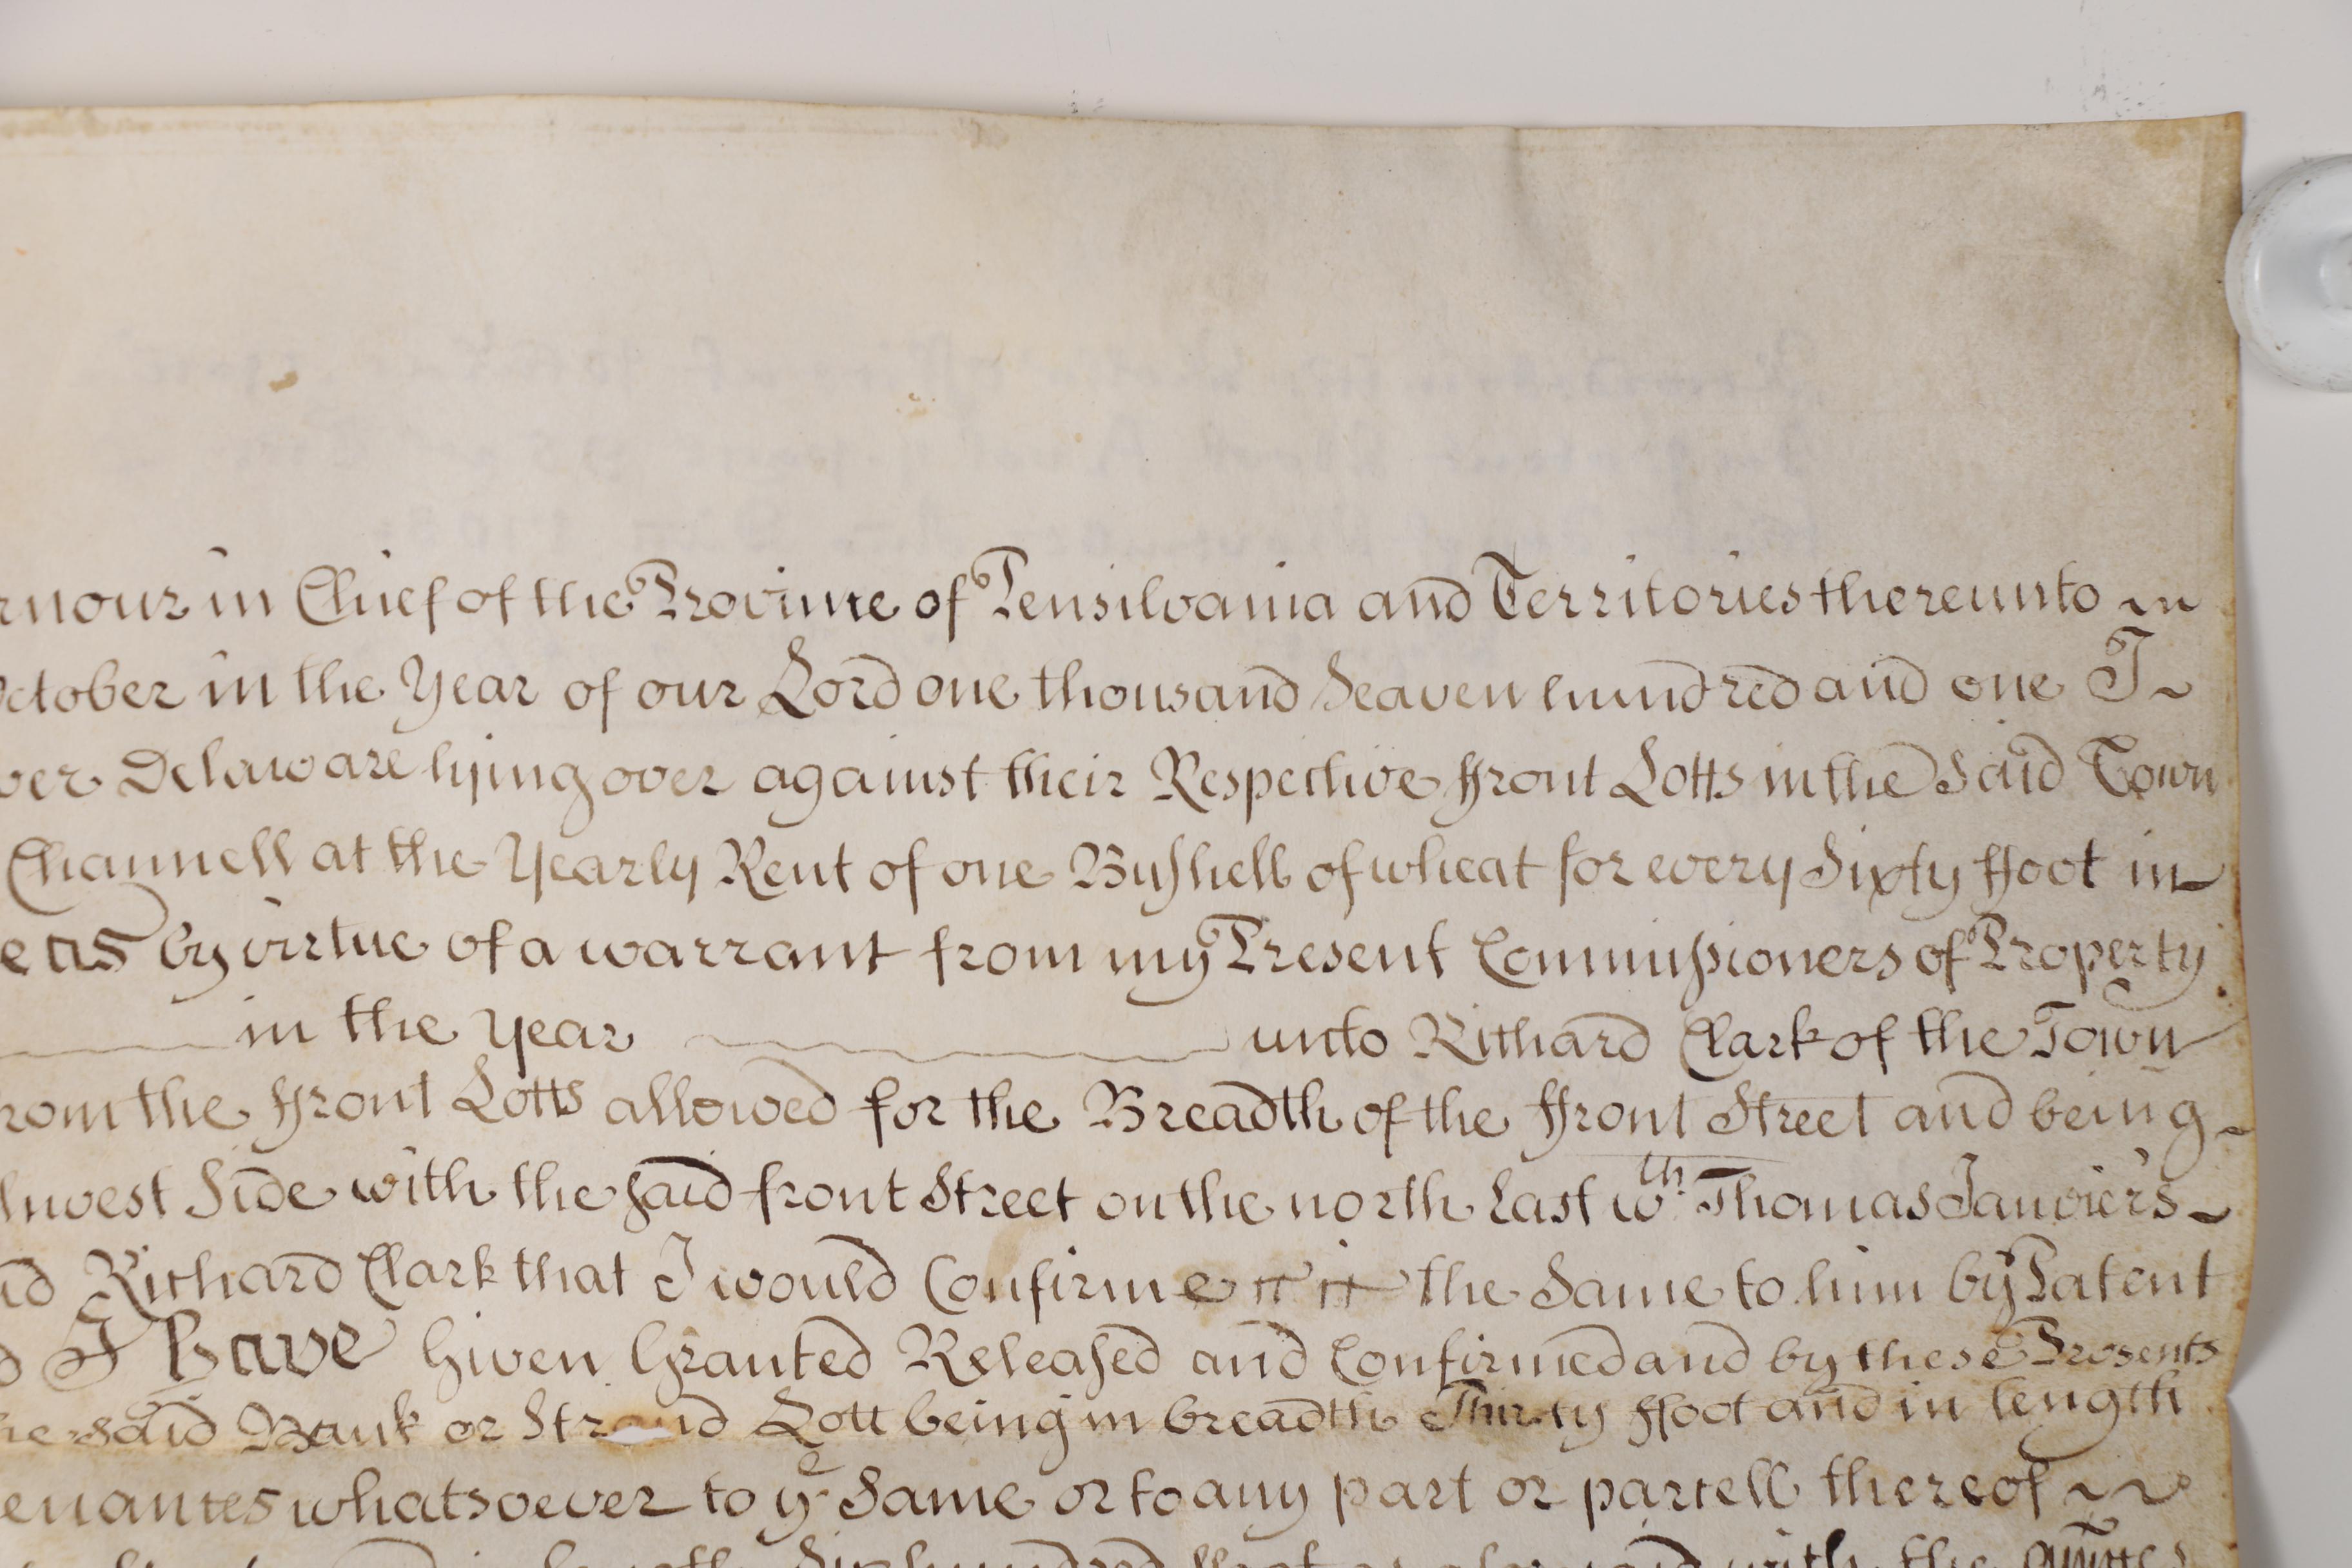 rnour in Chief of the Province of Pensilvania and Territories thereunto
october in the Year of our Lord one thousand Seaven hundred and one I
ver Delaware lying over against their Respective ffront Lotts in the Said Town
Channell at the Yearly Rent of one Bushell of wheat for every Sixty ffoot in
eas by virtue of a warrant from my Present Commissioners of Property
in the Year unto Richard Clark of the Town
rom the ffront Lotts allowed for the Breadth of the ffront Street and being
hwest Side with the said front Street on the north East wth Thomas Janvier's
id Richard Clark that I would Confirme the Same to him by Patent
I Have Given Granted Released and Confirmed and by these Presents
he said Bank or Strand Lott being in breadth Thirty ffoot and in length
enances whatsoever to ye Same or to any part or parcell thereof
with the